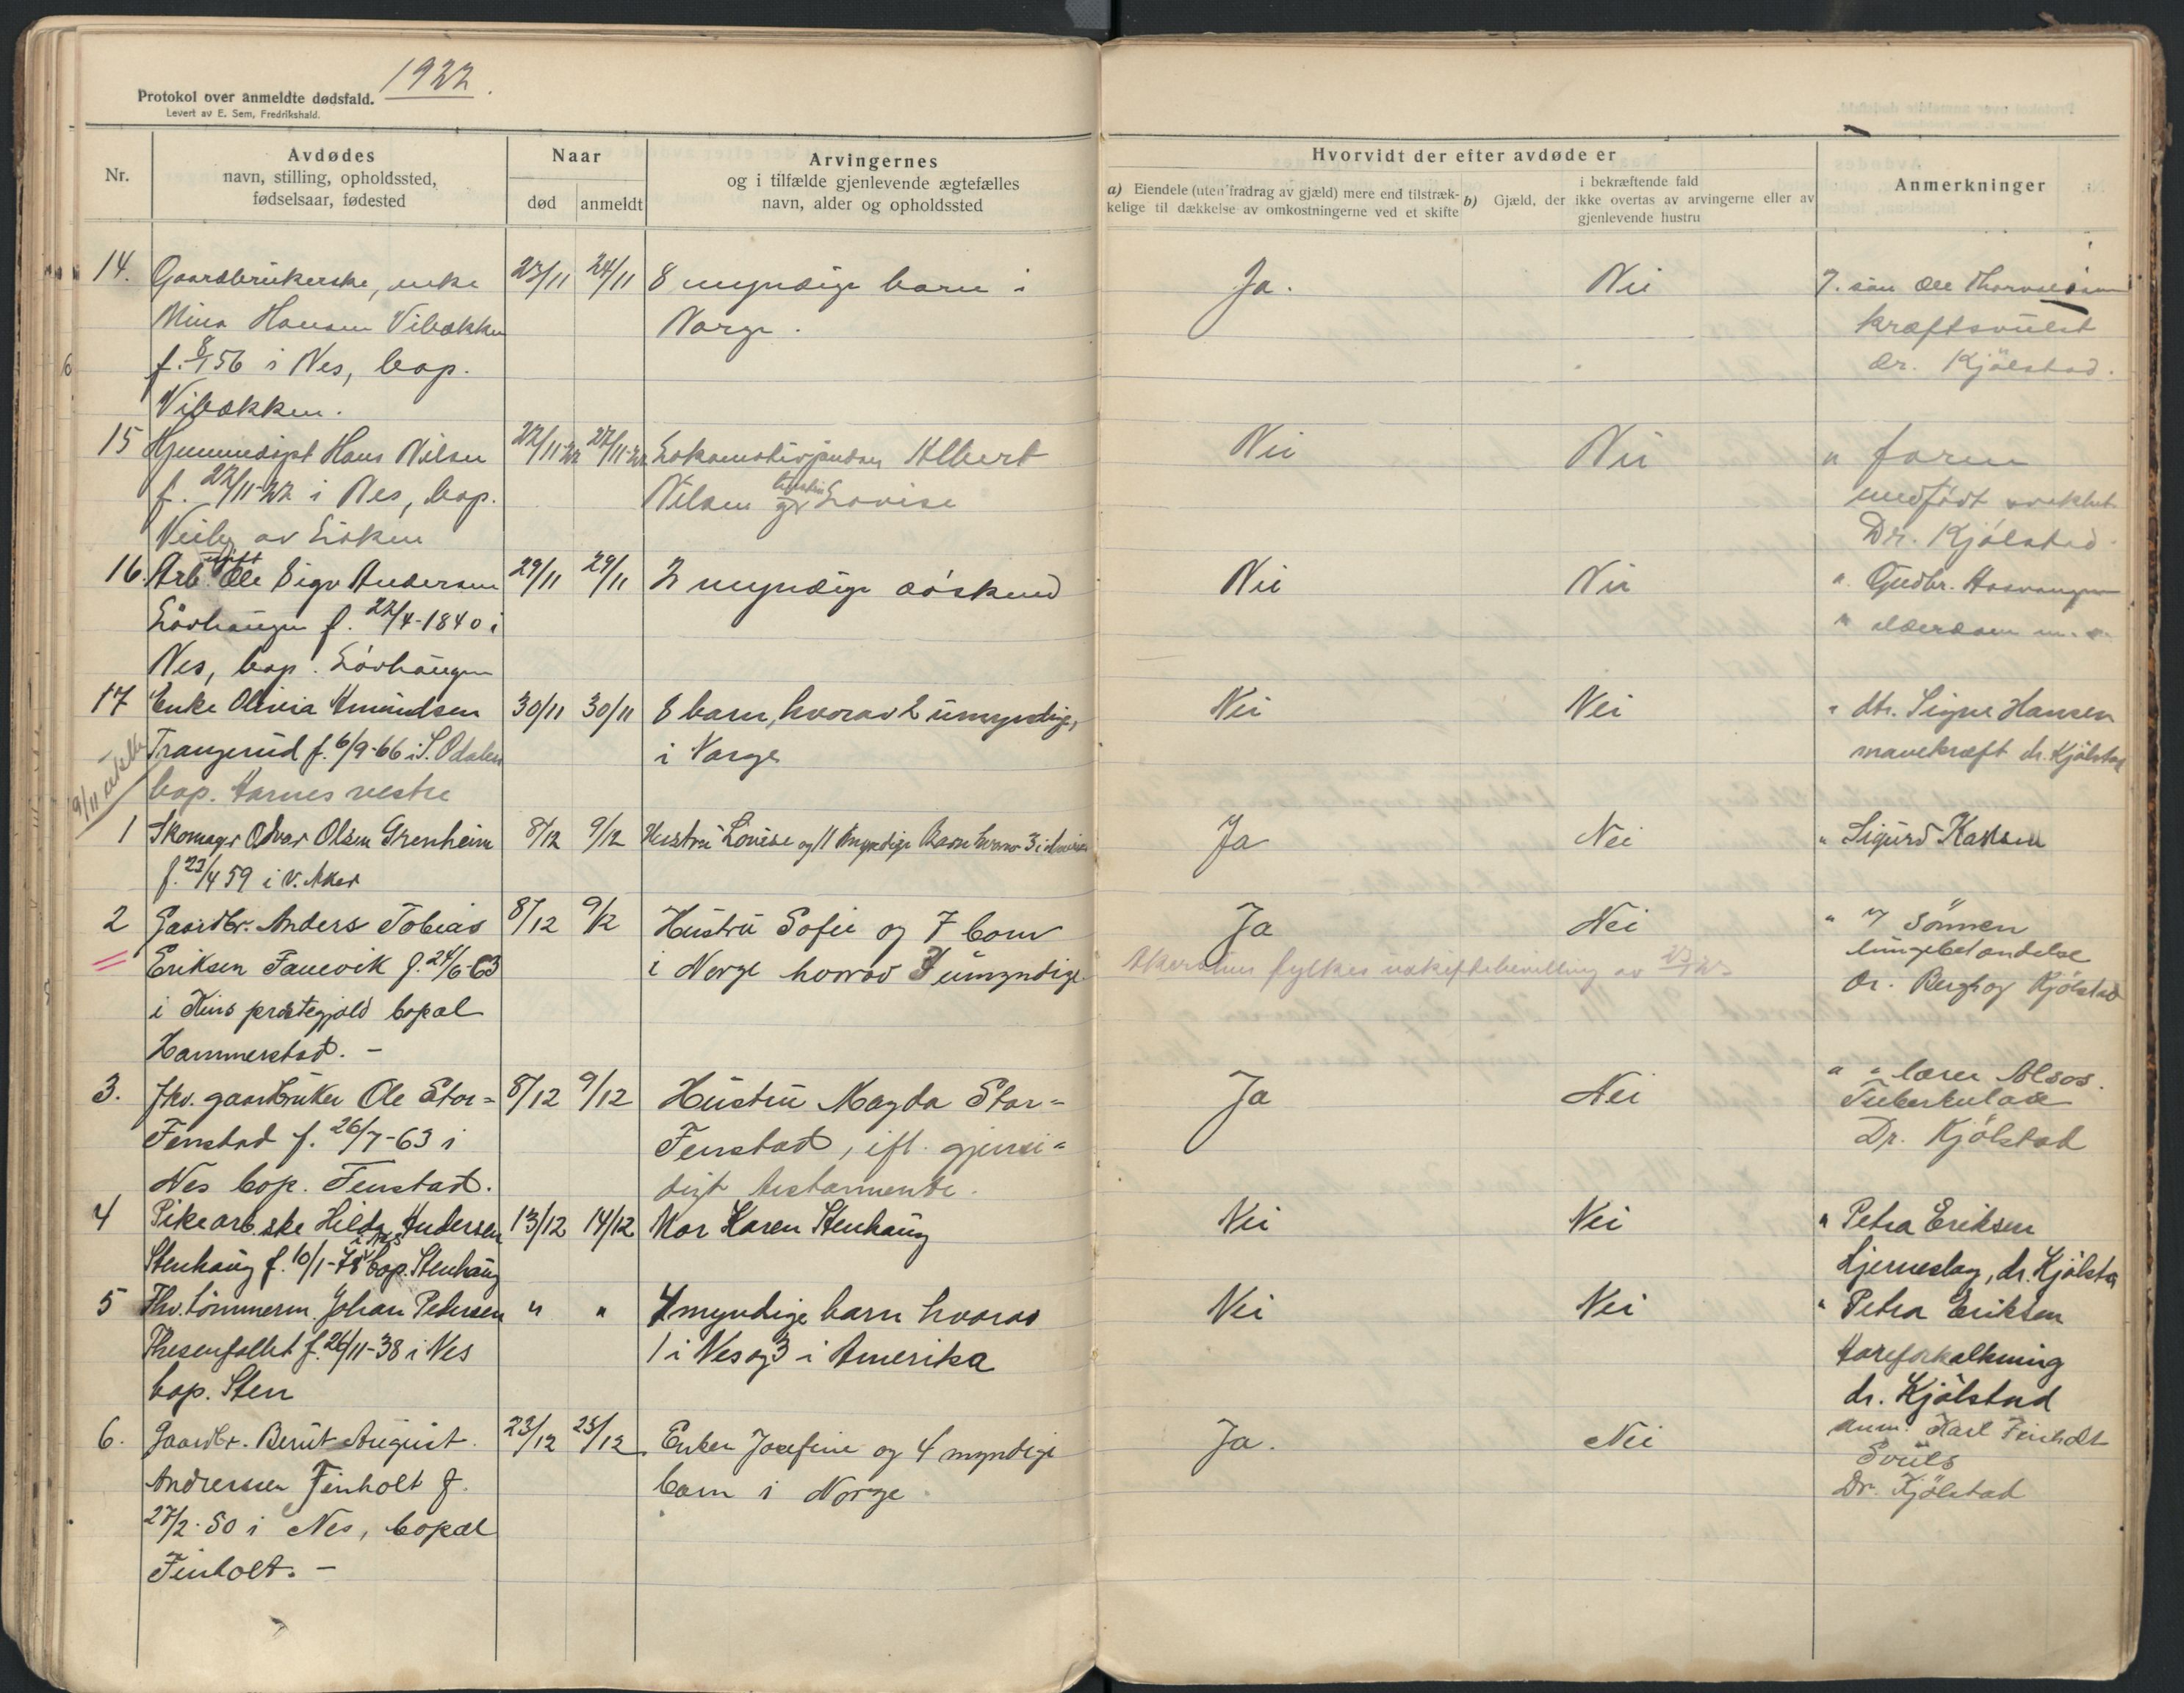 1922.
Protokol over anmeldte dødsfald.
Levert av E. Sem, Fredrikshald.
Nr.
Avdødes
navn, stilling, opholdssted,
fødselsaar, fødested
Naar
død
anmeldt
Arvingernes
og i tilfælde gjenlevende ægtefælles
navn, alder og opholdssted
Hvorvidt der efter avdøde er
a) Eiendele (uten fradrag av gjæld) mere end tilstræk-
kelige til dækkelse av omkostningerne ved et skifte
i bekræftende fald
b) Gjæld, der ikke overtas av arvingerne eller av
gjenlevende hustru
Anmerkninger
14. Gaardbrukerske, enke 23/11 24/11 8 myndige barn i Ja. Nei
Mina Hansen Vibækken Norge. kræftsvulst
f. 8/1 56 i Nes, bop. dr. Kjölstad.
Vibækken.
15 Hjemmedøpt Hans Nilsen 22/11-22 27/11-22 Lokomotivpudser Albert Nei Nei " faren
f. 22/11-22 i Nes, bop. Nilsen og hustru Lovise medfödt svakhet
Veiby av Disken Dr. Kjölstad
16. Arb. ugift Ole Sigv Andersen 29/11 29/11 2 myndige søskend Nei Nei " Gudbr.
Lövhaugen f. 22/4-1840 i " alderdom
Nes, bop. Lövhaugen
17 Enke Olivia Amundsen 30/11 30/11 8 barn, hvorav 2 umyndige, Nei Nei " dtr. Signe Hansen
Trangerud f. 6/9-66 i S. Odalen i Norge mavekræft dr. Kjölstad
bop. Harnes vestre
1 Skomager Odvar Olsen Grenheim 8/12 9/12 Hustru Lovise og 11 myndige Barn hvorav 3 i Ja Nei " Sigurd Karlsen
f. 23/4 59 i V. Aker
2 Gaardbr. Anders Tobias 8/12 9/12 Hustru Sofie og 7 barn Ja Nei " Sönnen
Eriksen Fanevik f. 24/6-63 i Norge hvorav 3 umyndige Akershus fylkes uskiftebevilling av lungebetændelse
i Kins præstegjæld bopæl Dr. Bergh og Kjölstad
Hammerstad. -
3. Fhv. gaardbruker Ole Stor= 8/12 9/12 Hustru Magda Stor= Ja Nei " " lærer Alsos.
Fenstad f. 26/7-63 i Fenstad, ifl. gjensi= Tuberkulose
Nes bop. Fenstad. digt testamente. Dr. Kjölstad
4 Pike arb.ske Hilda Andersen 13/12 14/12 Mor Karen Stenhaug Nei Nei " Petra Eriksen
Stenhaug f. 10/1-78 i Nes bop. Stenhaug Hjerneslag, dr. Kjölsta
5 Fhv. tømmerm. Johan Pedersen " " 4 myndige barn hvorav Nei Nei " Petra Eriksen
Thesenfallet f. 26/11-38 i Nes 1 i Nes og 3 i Amerika Aareforkalkning
bop. Sten dr. Kjölstad
6. Gaardbr. Bernt August 23/12 23/12 Enken Josefine og 4 myndige Ja. Nei anm. Karl Finholt
Andreassen Finholt f. barn i Norge
27/2-50 i Nes, bopæl Dr. Kjölstad
Finholt. -